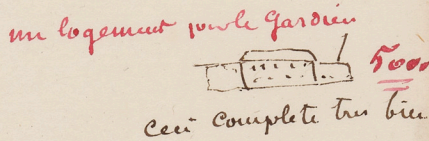 un logement pour le Gardien
5000
ceci complete tres bien